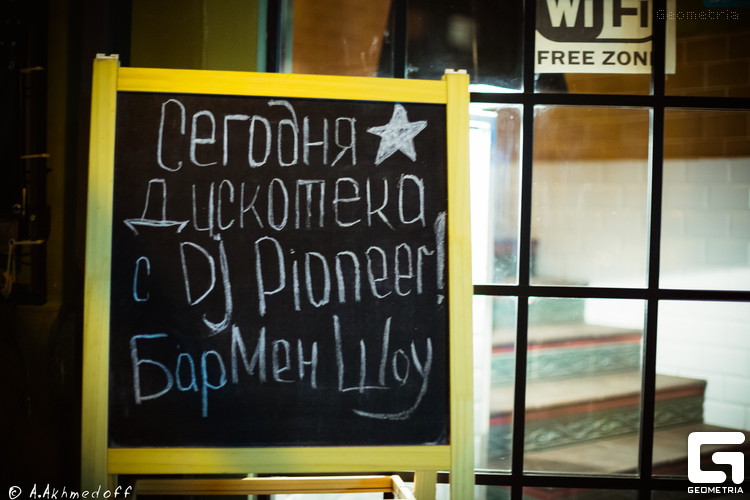 Geometria
WIFI
FREE ZONE
Сегодня
Дискотека
с Dj Pioneer!
Бармен Шоу
© A.Akhmedoff
GEOMETRIA